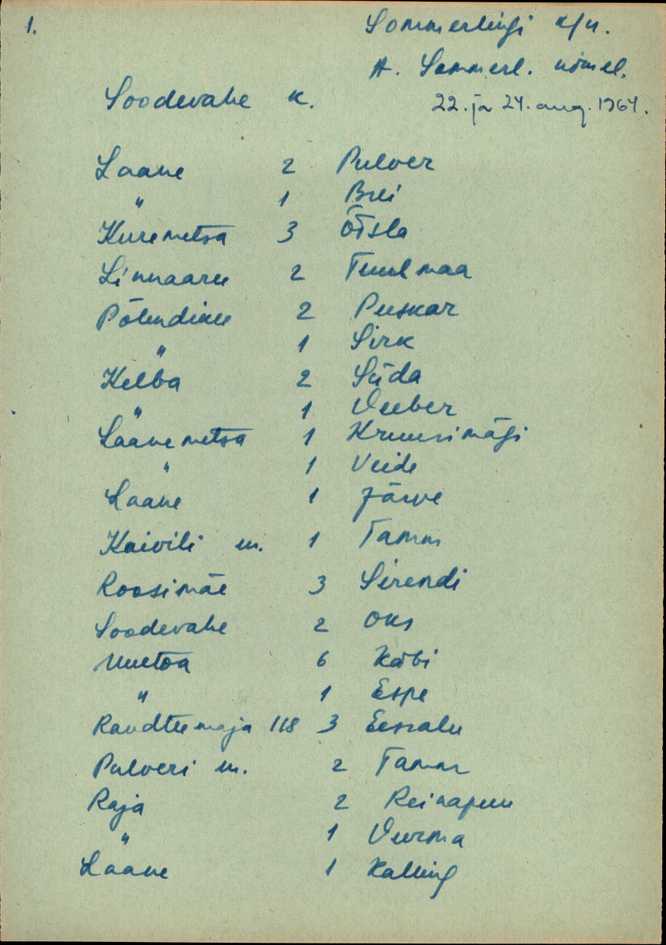 1.
Sommerlingi k/n.
A. Sommerl. nimel.
Soodevahe k.
22. ja 24. aug. 1964.
Laane 2 Pulver
" 1 Brei
Kuremetsa 3 Õisla
Linnaaru 2 Tuulmaa
Põlendiku 2 Puskar
" 1 Sirk
Kelba 2 Süda
" 1 Veeber
Läänemetsa 1 Kruusimägi
" 1 Veide
Laane 1 Järve
Kaivili m. 1 Tamm
Roosimäe 3 Sirendi
Soodevahe 2 Oks
Uuetoa 6 Käbi
" 1 Espe
Raudteemaja 118 3 Eessalu
Pulveri m. 2 Tamm
Raja 2 Reinapuu
" 1 Vurma
Laane 1 Kalling